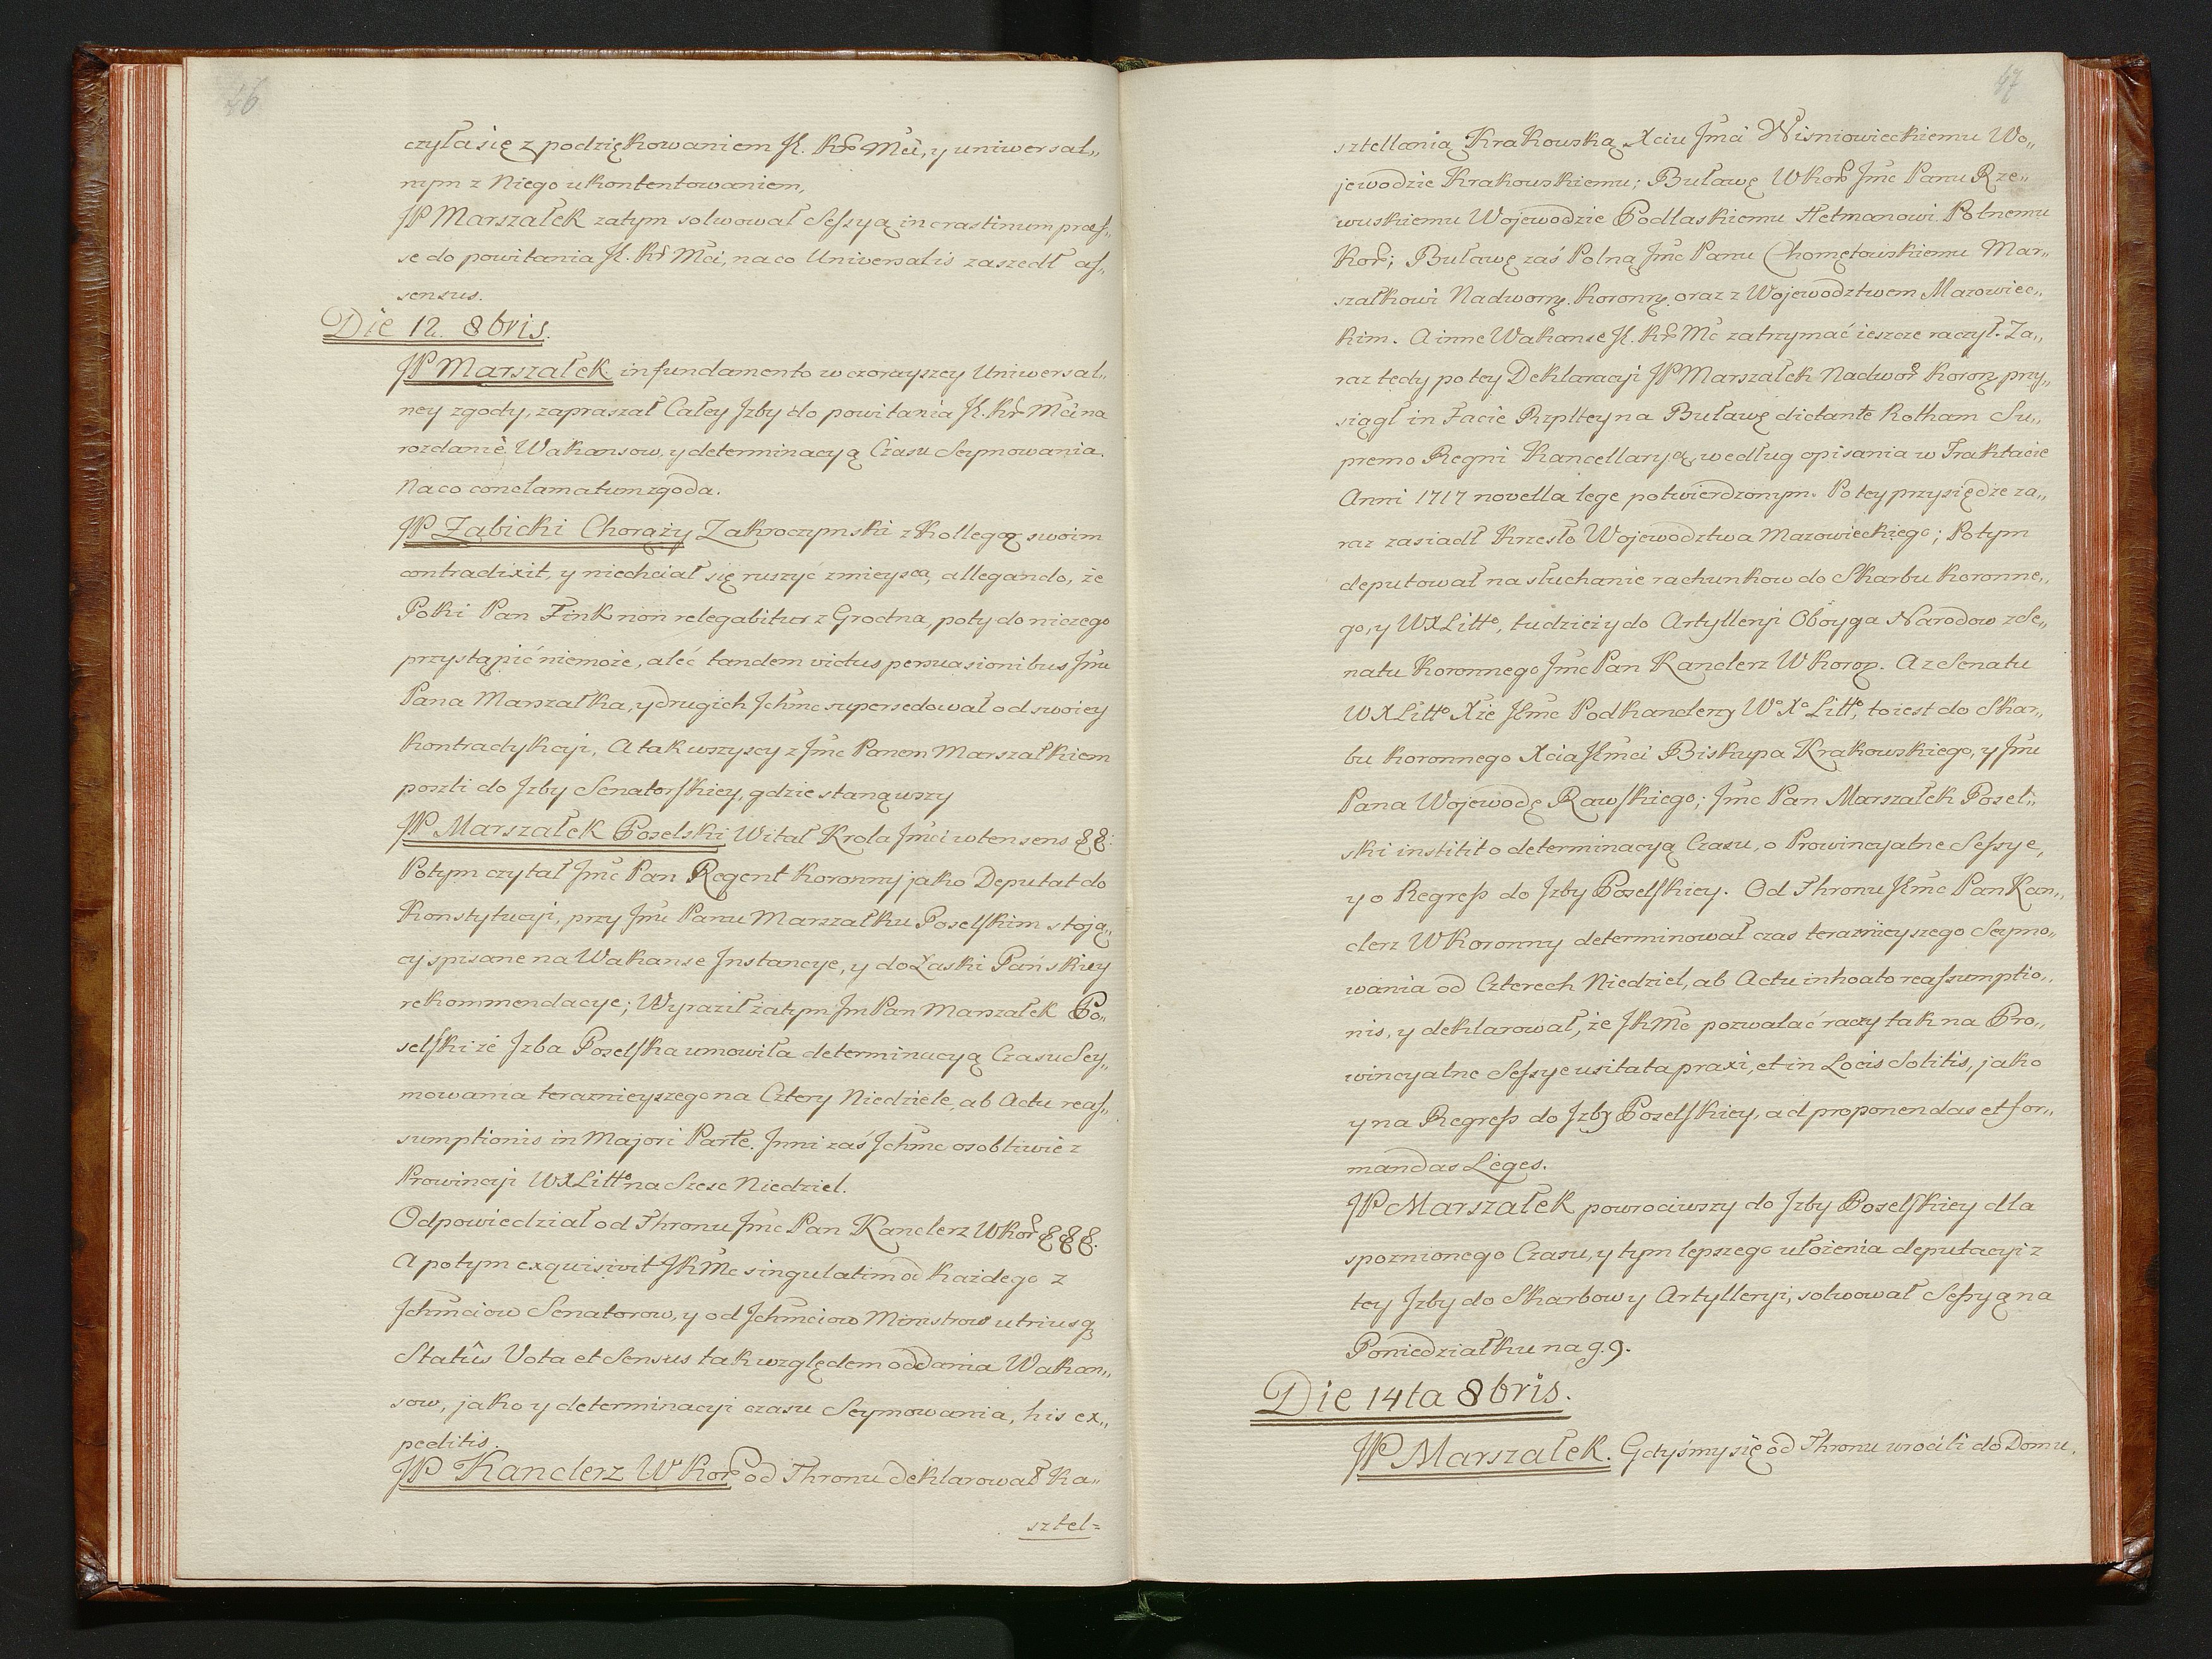 46
czyła się z podziękowaniem J. Kr Mći, y uniwersal„
nym z Niego ukontentowaniem,
JP Marszałek zatym solwował Sessyą in crastinum præs„
se do powitania J. Kr Mći, na co Universalis zaszedł as„
sensus.
Die 12. 8bris.
JP Marszałek in fundamento wczorayszey Uniwersal„
ney zgody, zapraszał Całey Jzby do powitania J. Kr Mći na
rozdanie Wakansow, y determinacyą Czasu Seymowania.
Na co conclamatum zgoda.
JP Ząbicki Chorąży Zakroczymski z Kollegą swoim
contradixit, y niechciał się ruszyć z mieysca, allegando, że
Poki Pan Fink non relegabitur z Grodna, poty do niczego
przystąpić niemoże, aleć tandem victus persuasionibus Jmci
Pana Marszałka, y drugich Jchmc supersedował od swoiey
Kontradykcyi, A tak wszyscy z Jmc Panem Marszałkiem
poszli do Jzby Senatorskiey, gdzie stanąwszy
JP Marszałek Poselski Witał Krola Jmci w ten sens &&:
Potym czytał Jmc Pan Regent Koronny jako Deputat do
Konstytucyi, przy Jmci Panu Marszałku Poselskim stoją„
cy spisane na Wakanse Jnstancye, y do Łaski Pańskiey
rekommendacye; Wyraził zatym Jm Pan Marszałek Po„
selski że Jzba Poselska umowiła determinacyą Czasu Sey„
mowania teraznieyszego na Cztery Niedziele, ab Actu reas„
sumptionis in Majori Parte. Jnni zaś Jchmc osobliwie z
Prowincyi WXLitto na Szesc Niedziel.
Odpowiedział od Thronu Jmc Pan Kanclerz WKor &&&.
A potym exquisivit JKMc singulatim od każdego z
Jchmciow Senatorow, y od Jchmciow Ministrow utriusq
Statûs Vota et Sensus tak względem oddania Wakan„
sow, jako y determinacyi czasu Seymowania, his ex„
peditis.
JP Kanclerz WKor od Thronu deklarował Ka„
sztel=
47
sztellanią Krakowską Xciu Jmci Wisniowieckiemu Wo„
jewodzie Krakowskiemu; Buławę WKor Jmc Panu Rze„
wuskiemu Wojewodzie Podlaskiemu Hetmanowi Polnemu
Kor; Buławę zaś Polną Jmc Panu Chomętowskiemu Mar„
szałkowi Nadworn. Koronn. oraz z Wojewodztwem Mazowiec„
kim. A inne Wakanse J. Kr Mc zatrzymać ieszcze raczył. Za„
raz tedy po tey Deklaracyi JP Marszałek Nadwor Koron. przy„
siągł in Facie Rzpltey na Buławę dictante Rotham Su„
premo Regni Kancellaryą, według opisania w Traktacie
Anni 1717 novella lege potwierdzonym. Po tey przysiędze za„
raz zasiadł Krzesło Wojewodztwa Mazowieckiego; Potym
deputował na słuchanie rachunkow do Skarbu Koronne„
go, y WXLitto, tudzież y do Artylleryi Oboyga Narodow z Se„
natu Koronnego Jmc Pan Kanclerz WKoron. A z Senatu
WXLitto Xże Jmc Podkanclerzy Wo Xo Litto, to iest do Skar„
bu Koronnego Xcia Jmci Biskupa Krakowskiego, y Jmci
Pana Wojewodę Rawskiego; Jmc Pan Marszałek Posel„
ski institit o determinacyą Czasu, o Prowincyalne Sessye,
y o Regress do Jzby Poselskiey. Od Thronu Jmc Pan Kan„
clerz WKoronny determinował czas teraznieyszego Seymo„
wania od Czterech Niedziel, ab Actu inhoato reassumptio„
nis, y deklarował, że JKMc pozwalać raczy tak na Pro„
wincyalne Sessye usitata praxi, et in Locis Solitis, jako
y na Regress do Jzby Poselskiey, ad proponendas et for„
mandas Leges.
JP Marszałek powrociwszy do Jzby Poselskiey dla
spoznionego Czasu, y tym lepszego ułożenia deputacyi z
tey Jzby do Skarbow y Artylleryi, solwował Sessyą na
Poniedziałku na g. 9.
Die 14ta 8bris.
JP Marszałek. Gdyśmy się od Thronu wrocili do Domu.